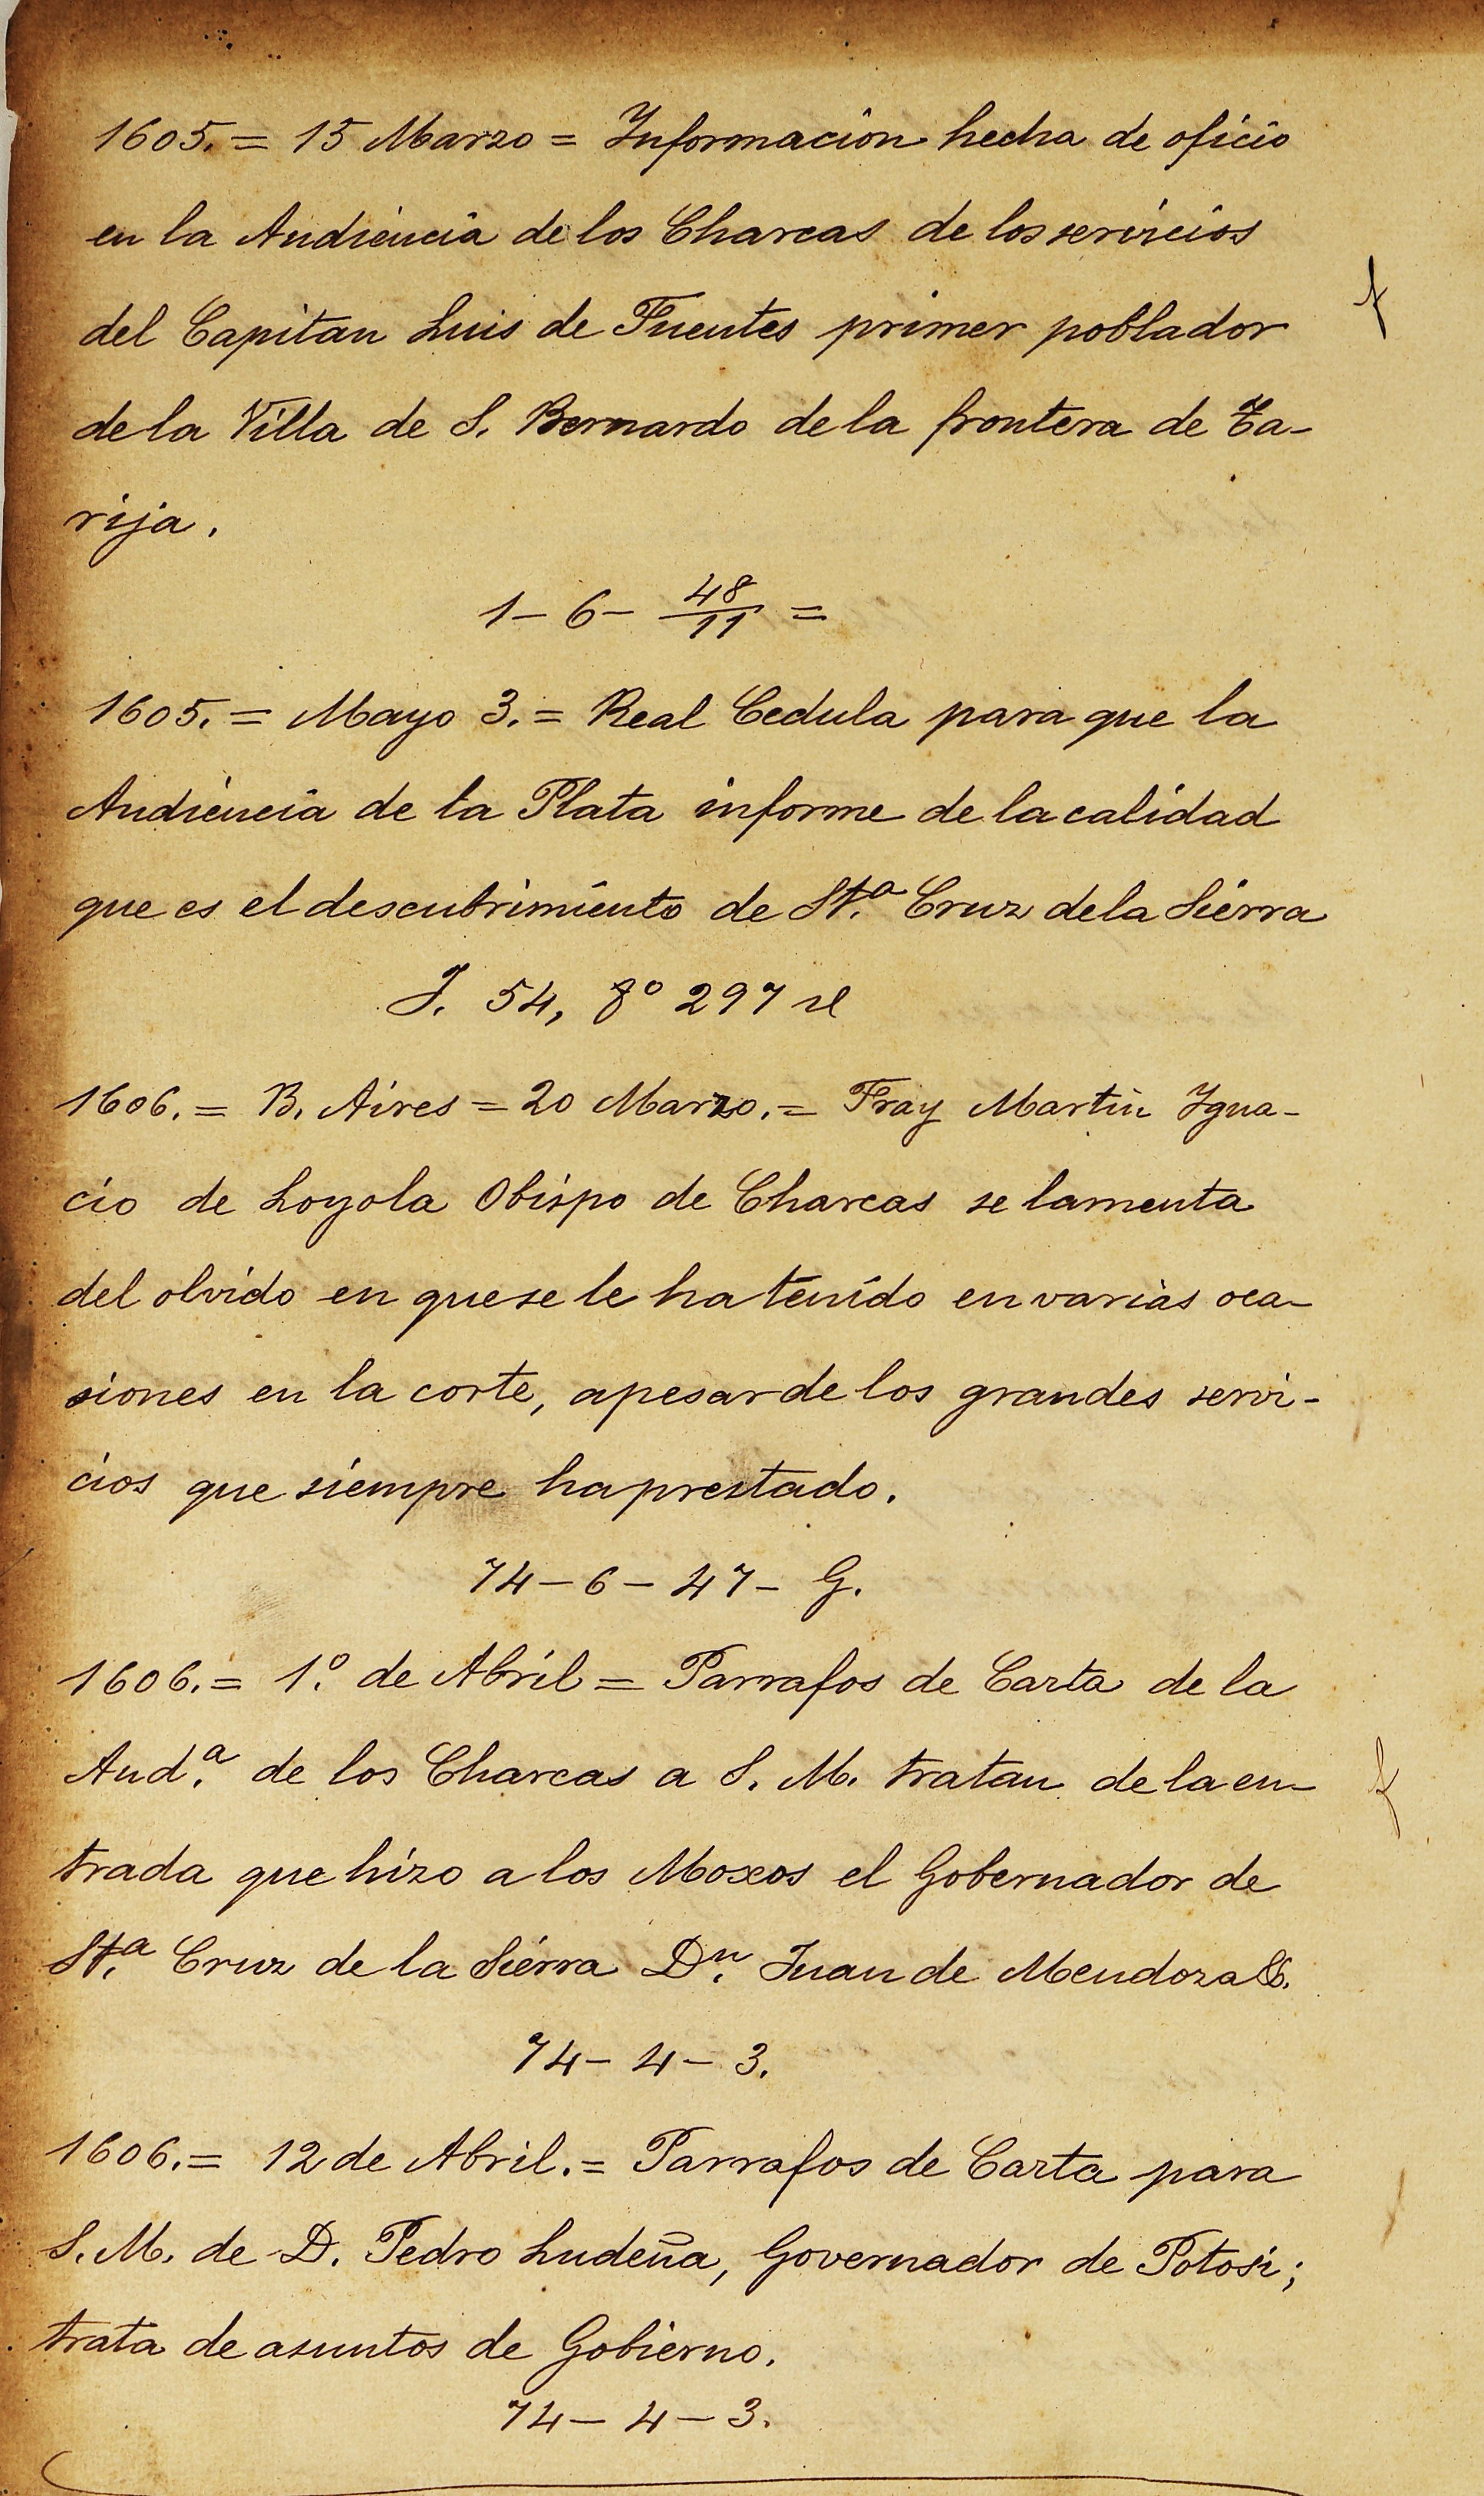 1605.= 15 Marzo = Informacion hecha de oficio
en la Audiencia de los Charcas de los servicios
del Capitan Luis de Fuentes primer poblador
de la Villa de S. Bernardo de la frontera de Ta-
rija.
1-6- 48/11 =
1605.= Mayo 3.= Real Cedula para que la
Audiencia de la Plata informe de la calidad
que es el descubrimiento de Sta. Cruz de la Sierra
J. 54, fo 297
1606.= B. Aires = 20 Marzo.= Fray Martin Igna-
cio de Loyola Obispo de Charcas se lamenta
del olvido en que se le ha tenido en varias oca-
siones en la corte, apesar de los grandes servi-
cios que siempre ha prestado.
74-6-47- G.
1606.= 1.º de Abril = Parrafos de Carta de la
Aud.ª de los Charcas a S. M. tratan de la en-
trada que hizo a los Moxos el Gobernador de
St.ª Cruz de la Sierra Dn. Juan de Mendoza &.
74-4-3.
1606.= 12 de Abril.= Parrafos de Carta para
S. M. de D. Pedro Ludeña, Governador de Potosi;
trata de asuntos de Gobierno.
74-4-3.